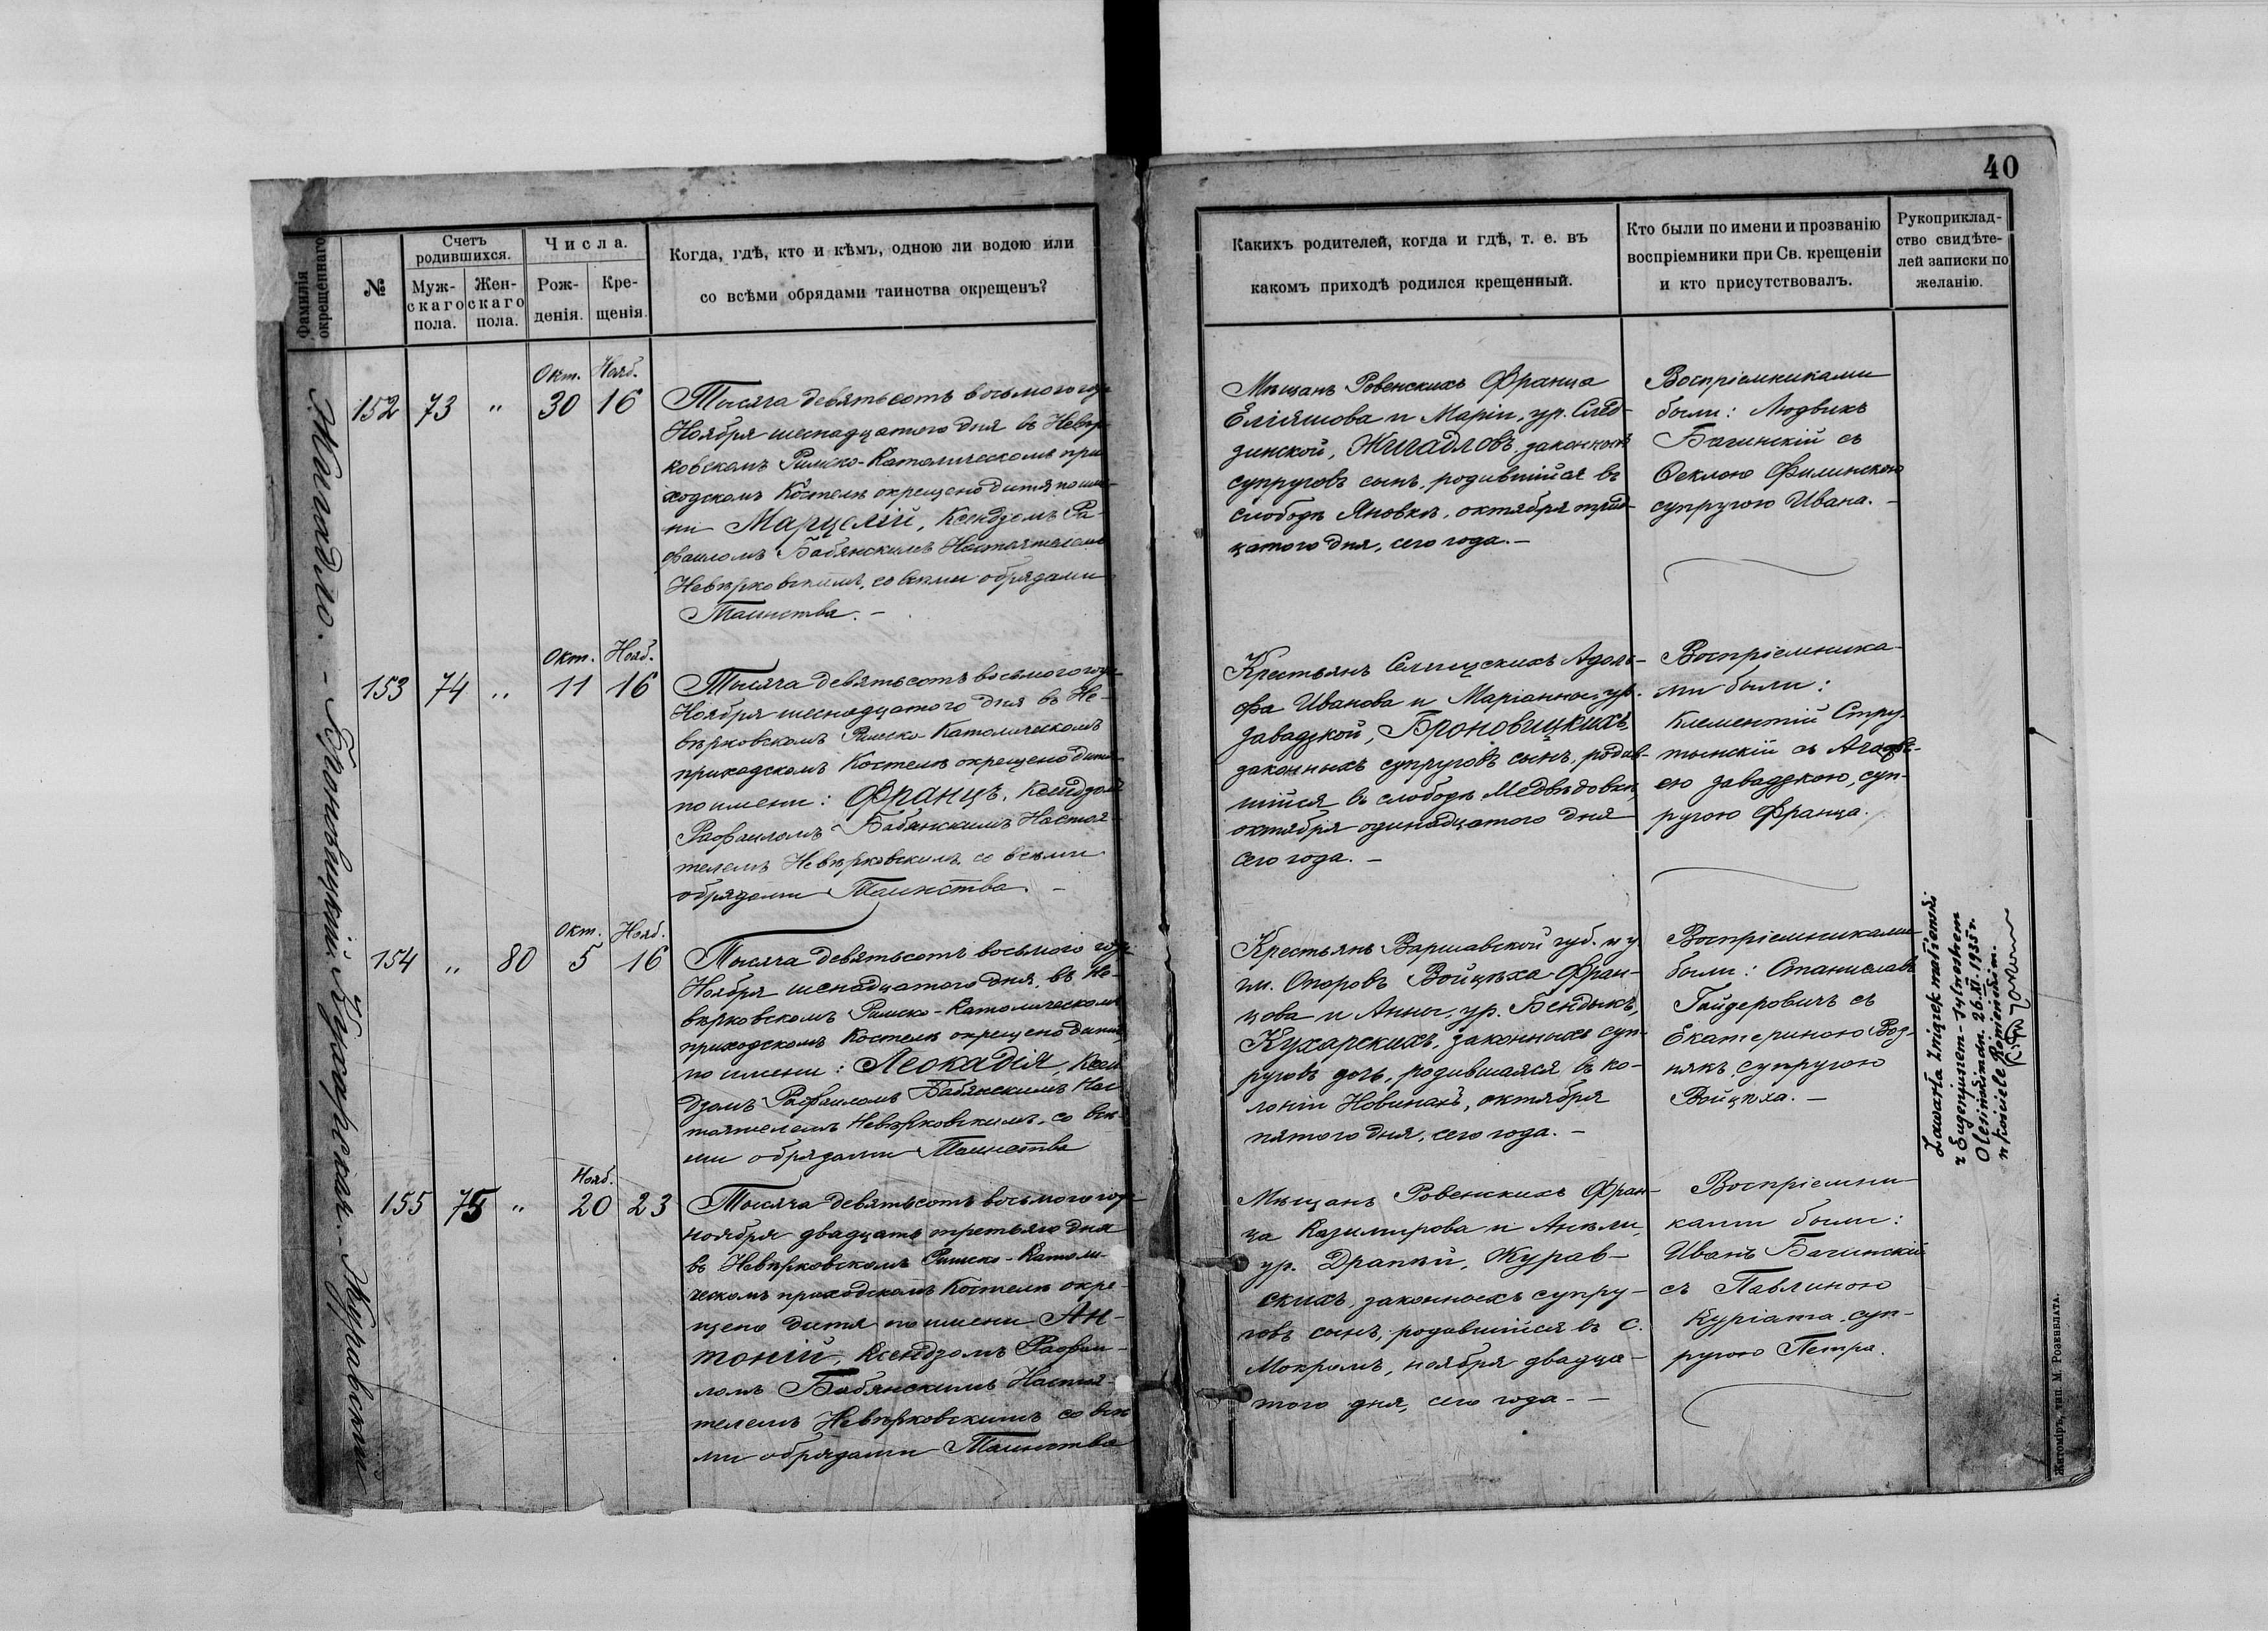 40
Фамилія
окрещеннаго
№
Счетъ
родившихся.
Муж-
скаго
пола.
Жен-
скаго
пола.
Числа.
Рож-
денія.
Кре-
щенія.
Когда, гдѣ, кто и кѣмъ, одною ли водою или
со всѣми обрядами таинства окрещенъ?
Какихъ родителей, когда и гдѣ, т. е. въ
какомъ приходѣ родился крещенный.
Кто были по имени и прозванію
воспріемники при Св. крещеніи
и кто присутствовалъ.
Рукоприклад-
ство свидѣте-
лей записки по
желанію.
Жигадло. - Броновицкій. Кухарская. - Журавскій
Окт. Нояб.
152 73 " 30 16
Тысяча девятьсотъ восьмого года
Ноября шеснадцатого дня въ Невѣр-
ковскомъ Римско-Католическомъ при
ходскомъ Костелѣ окрещено дитя по име-
ни Марцелій, Ксендзомъ Ра-
фаиломъ Бабянскимъ Настоятелемъ
Невѣрковскимъ, со всѣми обрядами
Таинства. -
Мѣщанъ Ровенскихъ Франца
Еліяшова и Маріи, ур. Слѣд-
зинской, Жигадловъ, законныхъ
супруговъ сынъ, родившійся въ
слободѣ Яновкѣ, октября трид-
цатого дня, сего года. -
Воспріемниками
были: Людвикъ
Багинскій съ
Феклою Филинскою
супругою Ивана. -
Окт. Нояб.
153 74 " 11 16
Тысяча девятьсотъ восьмого года
Ноября шеснадцатого дня въ Не-
вѣрковскомъ Римско-Католическомъ
приходскомъ Костелѣ окрещено дитя
по имени: Францъ, Ксендзомъ
Рафаиломъ Бабянскимъ Настоя-
телемъ Невѣрковскимъ со всѣми
обрядами Таинства. -
Крестьянъ Селищскихъ Адоль-
фа Иванова и Маріанны, ур.
Завадзкой, Броновицкихъ,
законныхъ супруговъ сынъ, родив-
шійся въ слободѣ Медвѣдовкѣ,
октября одинадцатого дня
сего года. -
Воспріемника-
ми были:
Клементій Стру-
тынскій съ
ею Завадзкою, суп-
ругою Франца.
Окт. Нояб.
154 " 80 5 16
Тысяча девятьсотъ восьмого года
Ноября шеснадцатого дня, въ Не-
вѣрковскомъ Римско-Католическомъ
приходскомъ Костелѣ окрещено дитя,
по имени: Леокадія, Ксен
дзомъ Рафаиломъ Бабянскимъ Нас
тоятелемъ Невѣрковскимъ, со всѣ-
ми обрядами Таинства
Крестьянъ Варшавской губ. и у.
гм. Опоровъ Войцѣха Фран-
цова и Анны, ур. Бендыкъ,
Кухарскихъ, законныхъ суп-
руговъ дочь, родившаяся въ ко-
лоніи Новинахъ, октября
пятого дня, сего года. -
Воспріемниками
были: Станиславъ
Гайдеровичъ съ
Екатериною Воз-
някъ, супругою
Войцѣха. -
Zawarła związek małżeński
z Eugenjuszem-Sylwestrem
Olesińskim dn. 26.XI.1935 r.
w kościele
Нояб.
155 75 " 20 23
Тысяча девятьсотъ восьмого года
ноября двадцать третьяго дня
въ Невѣрковскомъ Римско-Католи-
ческомъ приходскомъ Костелѣ окре-
щено дитя по имени Ан-
тоній, Ксендзомъ Рафаи-
ломъ Бабянскимъ Настоя-
телемъ Невѣрковскимъ со всѣ
ми обрядами Таинства
Мѣщанъ Ровенскихъ Фран-
ца Казимирова и Анѣли,
ур. Драпѣй, Журав-
скихъ, законныхъ супру-
говъ сынъ, родившійся въ с.
Мокромъ, ноября двадца-
того дня, сего года. -
Воспріемни
ками были:
Иванъ Багинскій
съ Павлиною
Куріата, суп-
ругою Петра.
Житоміръ, тип. М. Розенблата.